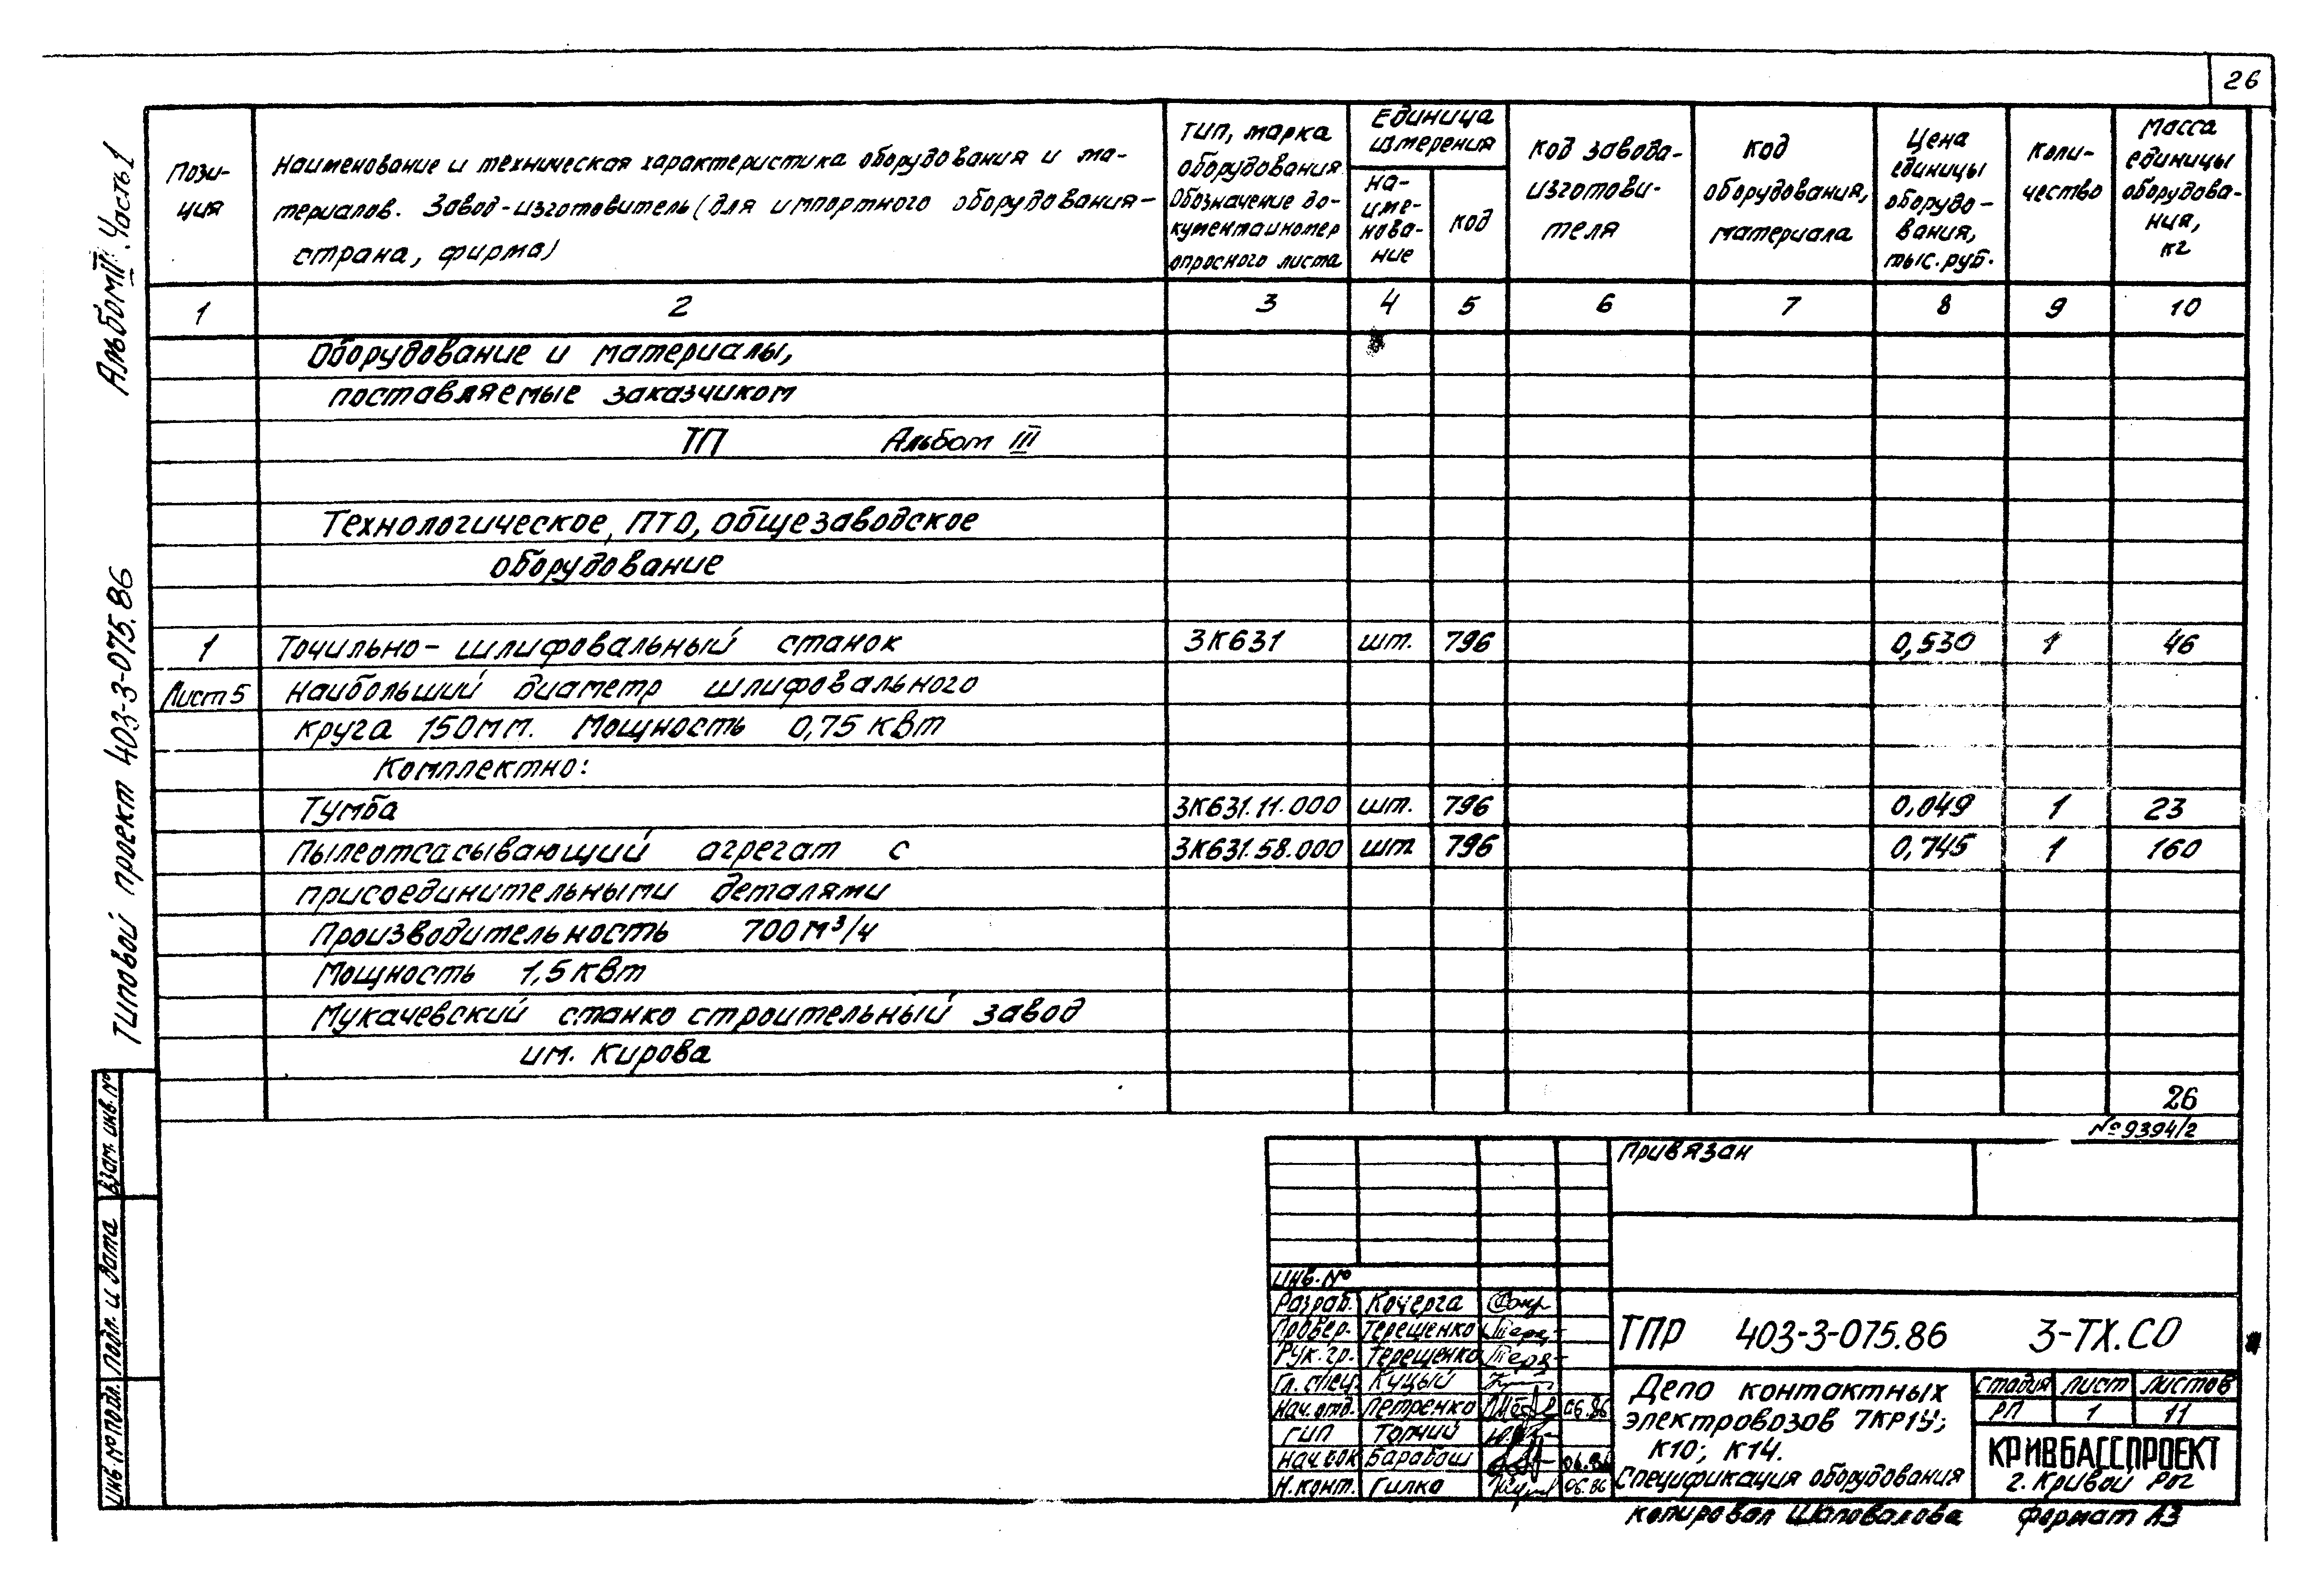 26
Альбом III. Часть 1
Типовой проект 403-3-075.86
Пози-
ция
Наименование и техническая характеристика оборудования и ма-
териалов. Завод-изготовитель (для импортного оборудования-
страна, фирма)
Тип, марка
оборудования
Обозначение до-
кумента и номер
опросного листа
Единица
измерения
на-
име-
нова-
ние
код
Код завода-
изготови-
теля
Код
оборудования,
материала
Цена
единицы
оборудо-
вания,
тыс. руб.
Коли-
чество
Масса
единицы
оборудова-
ния,
кг
1 2 3 4 5 6 7 8 9 10
Оборудование и материалы,
поставляемые заказчиком
ТП Альбом III
Технологическое, ПТО, общезаводское
оборудование
1 Точильно-шлифовальный станок 3К631 шт. 796 0,530 1 46
Лист 5 наибольший диаметр шлифовального
круга 150мм. Мощность 0,75 кВт
Комплектно:
Тумба 3К631.11.000 шт. 796 0,049 1 23
Пылеотсасывающий агрегат с 3К631.58.000 шт 796 0,745 1 160
присоединительными деталями
Производительность 700 м³/ч
Мощность 1,5 кВт
Мукачевский станкостроительный завод
им. Кирова
26
№ 9394/2
Взам. инв. №
Подп. и дата
Инв. № подл.
Привязан
Инв. №
Разраб. Кочерга
Провер. Терещенко
Рук. гр. Терещенко
Гл. спец. Куцый
Нач. отд. Петренко 06.86
ГИП Топчий
Нач. СОК Барабаш 06.86
Н. конт. Гилко 06.86
ТПР 403-3-075.86 3-ТХ.СО
Депо контактных
электровозов 7КР1У;
К10; К14.
Спецификация оборудования
Стадия Лист Листов
РП 1 11
КРИВБАССПРОЕКТ
г. Кривой Рог
Копировал Шаповалова Формат А3